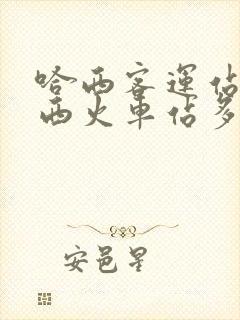 哈西客運佔
西火車佔多
安邑星